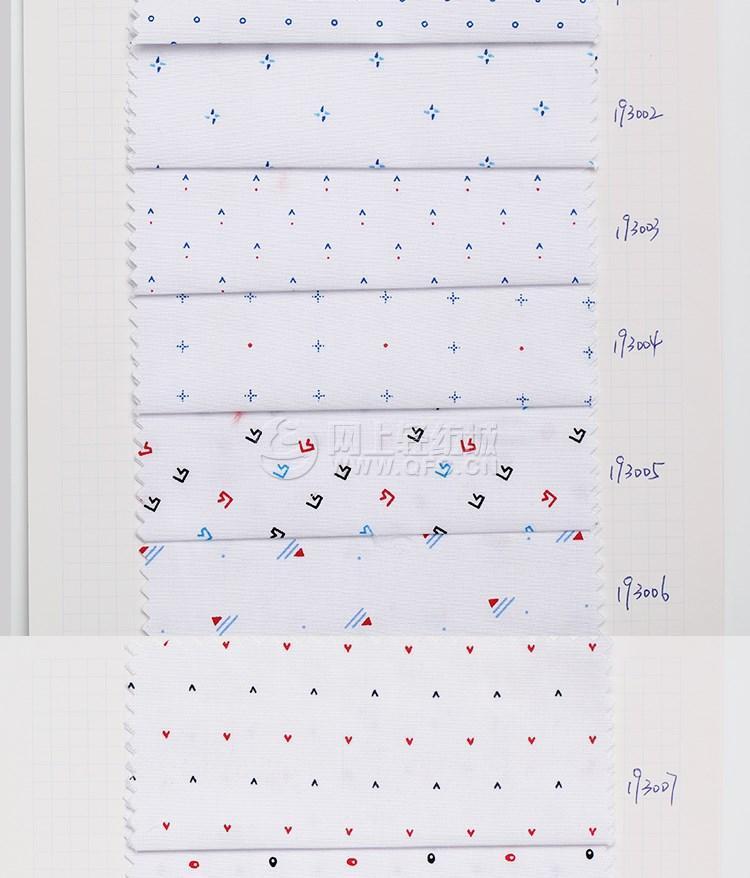 193002
193003
193004
网上轻纺城
WWW.QFC.CN
193005
193006
193007